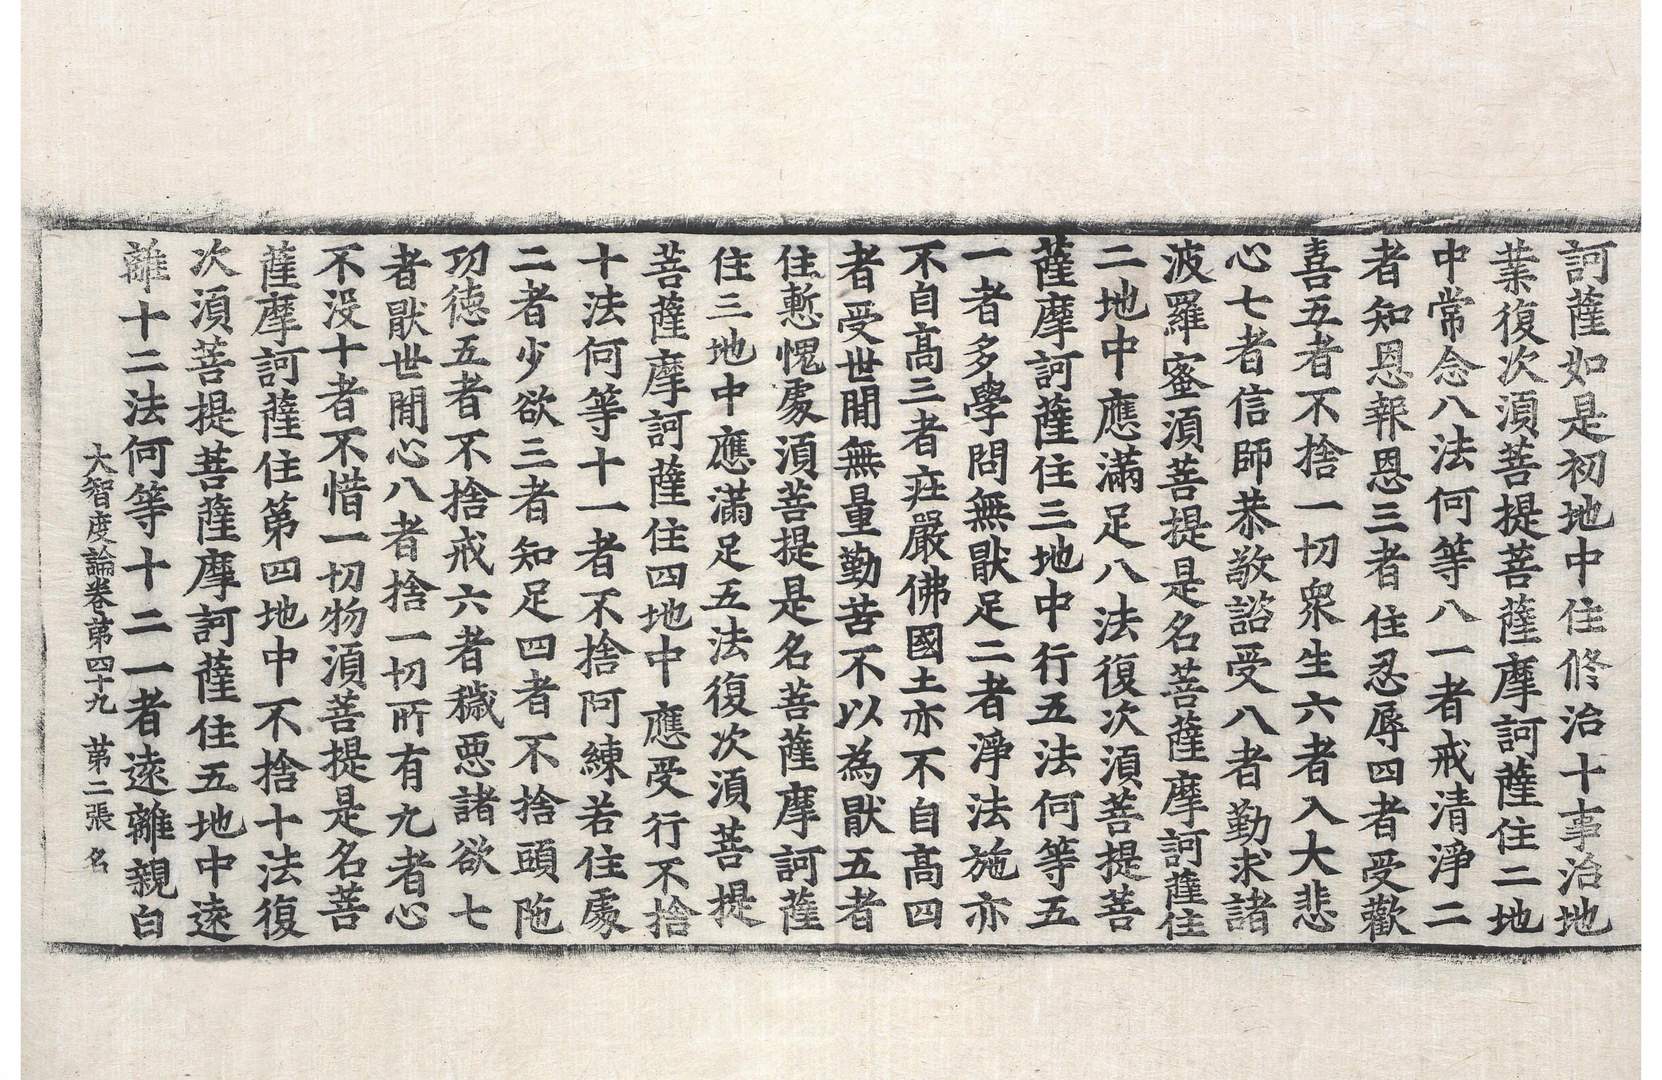 訶薩如是初地中住修治十事治地
業復次須菩提菩薩摩訶薩住二地
中常念八法何等八一者戒清淨二
者知恩報恩三者住忍辱四者受歡
喜五者不捨一切衆生六者入大悲
心七者信師恭敬諮受八者勤求諸
波羅蜜須菩提是名菩薩摩訶薩住
二地中應滿足八法復次須菩提菩
薩摩訶薩住三地中行五法何等五
一者多學問無猒足二者淨法施亦
不自高三者莊嚴佛國土亦不自高四
者受世閒無量勤苦不以為猒五者
住慙愧處須菩提是名菩薩摩訶薩
住三地中應滿足五法復次須菩提
菩薩摩訶薩住四地中應受行不捨
十法何等十一者不捨阿練若住處
二者少欲三者知足四者不捨頭陁
功德五者不捨戒六者穢惡諸欲七
者猒世閒心八者捨一切所有九者心
不没十者不惜一切物須菩提是名菩
薩摩訶薩住第四地中不捨十法復
次須菩提菩薩摩訶薩住五地中遠
離十二法何等十二一者遠離親白
大智度論卷第四十九 第二張 名